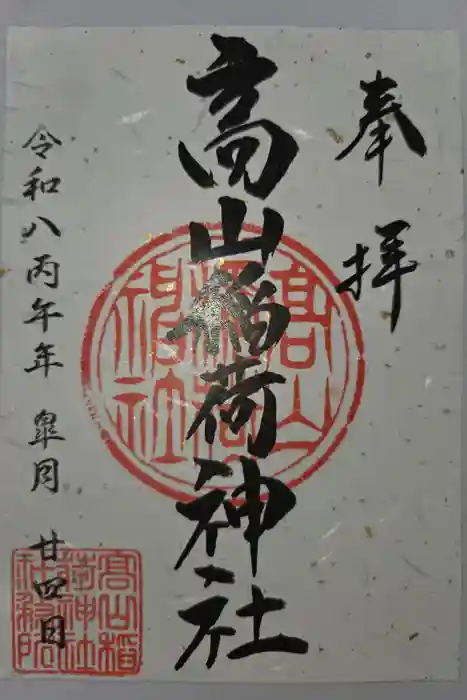 奉拝
高山稲荷神社
令和八丙午年 皐月 廿四日
高山稲荷神社
高山稲荷神社社務所